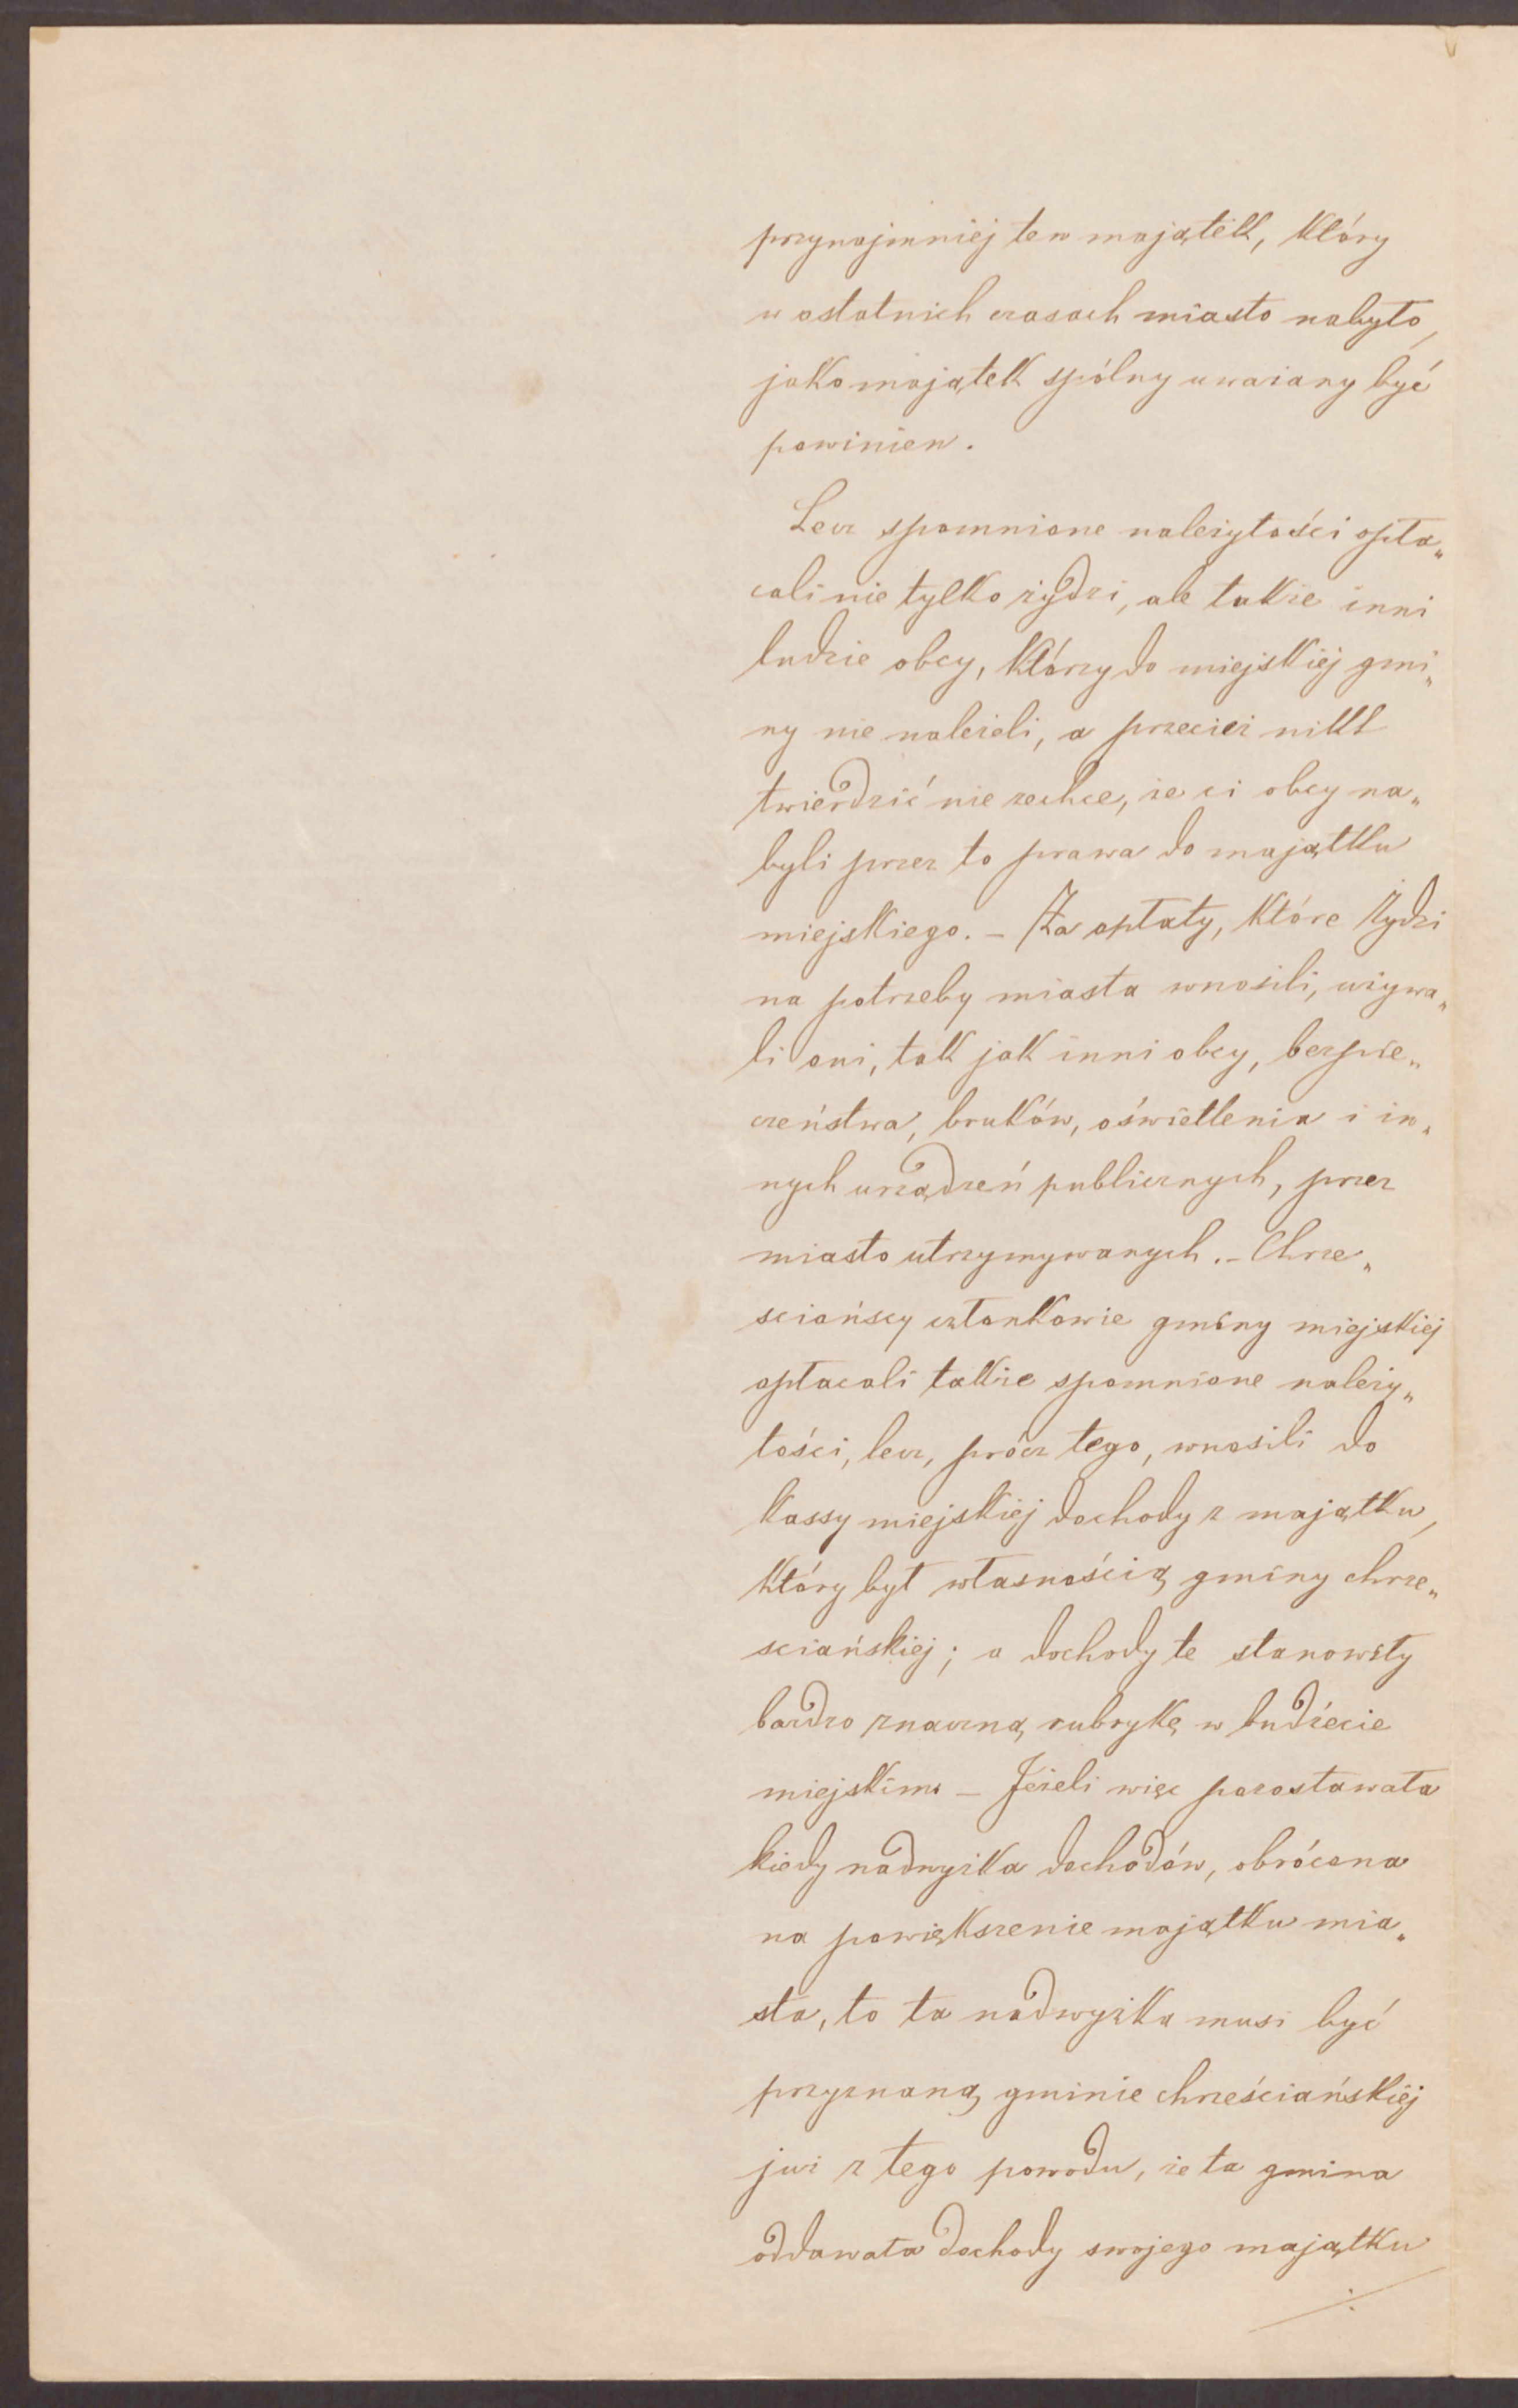 przynajmniej ten majątek, który
w ostatnich czasach miasto nabyło,
jako majątek spólny uważany być
powinien.
Lecz spomnione należytości opła„
cali nie tylko żydzi, ale także inni
ludzie obcy, którzy do miejskiej gmi„
ny nie należeli, a przecież nikt
twierdzić nie zechce, że ci obcy na„
byli przez to prawa do majątku
miejskiego. – Za opłaty, które Żydzi
na potrzeby miasta wnosili, używa„
li oni, tak jak inni obcy, bezpie„
czeństwa, bruków, oświetlenia i in„
nych urządzeń publicznych, przez
miasto utrzymywanych. – Chrze„
sciańscy członkowie gminy miejskiej
opłacali także spomnione należy„
tości, lecz, prócz tego, wnosili do
kassy miejskiej dochody z majątku,
który był własnością gminy chrze„
sciańskiej; a dochody te stanowiły
bardzo znaczną rubrykę w budżecie
miejskim. – Jeżeli więc pozostawała
kiedy nadwyżka dochodów, obrócona
na powiększenie majątku mia„
sta, to ta nadwyżka musi być
przyznaną gminie chrześciańskiej
już z tego powodu, że ta gmina
oddawała dochody swojego majątku
./.